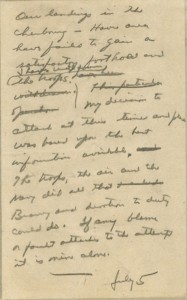 Our landings in the
Cherbourg - Havre area
have failed to gain a
satisfactory foothold and
the troops
My decision to
attack at this time and place
was based upon the best
information available.
The troops, the air and the
Navy did all that
Bravery and devotion to duty
could do. If any blame
or fault attaches to the attempt
it is mine alone.
July 5